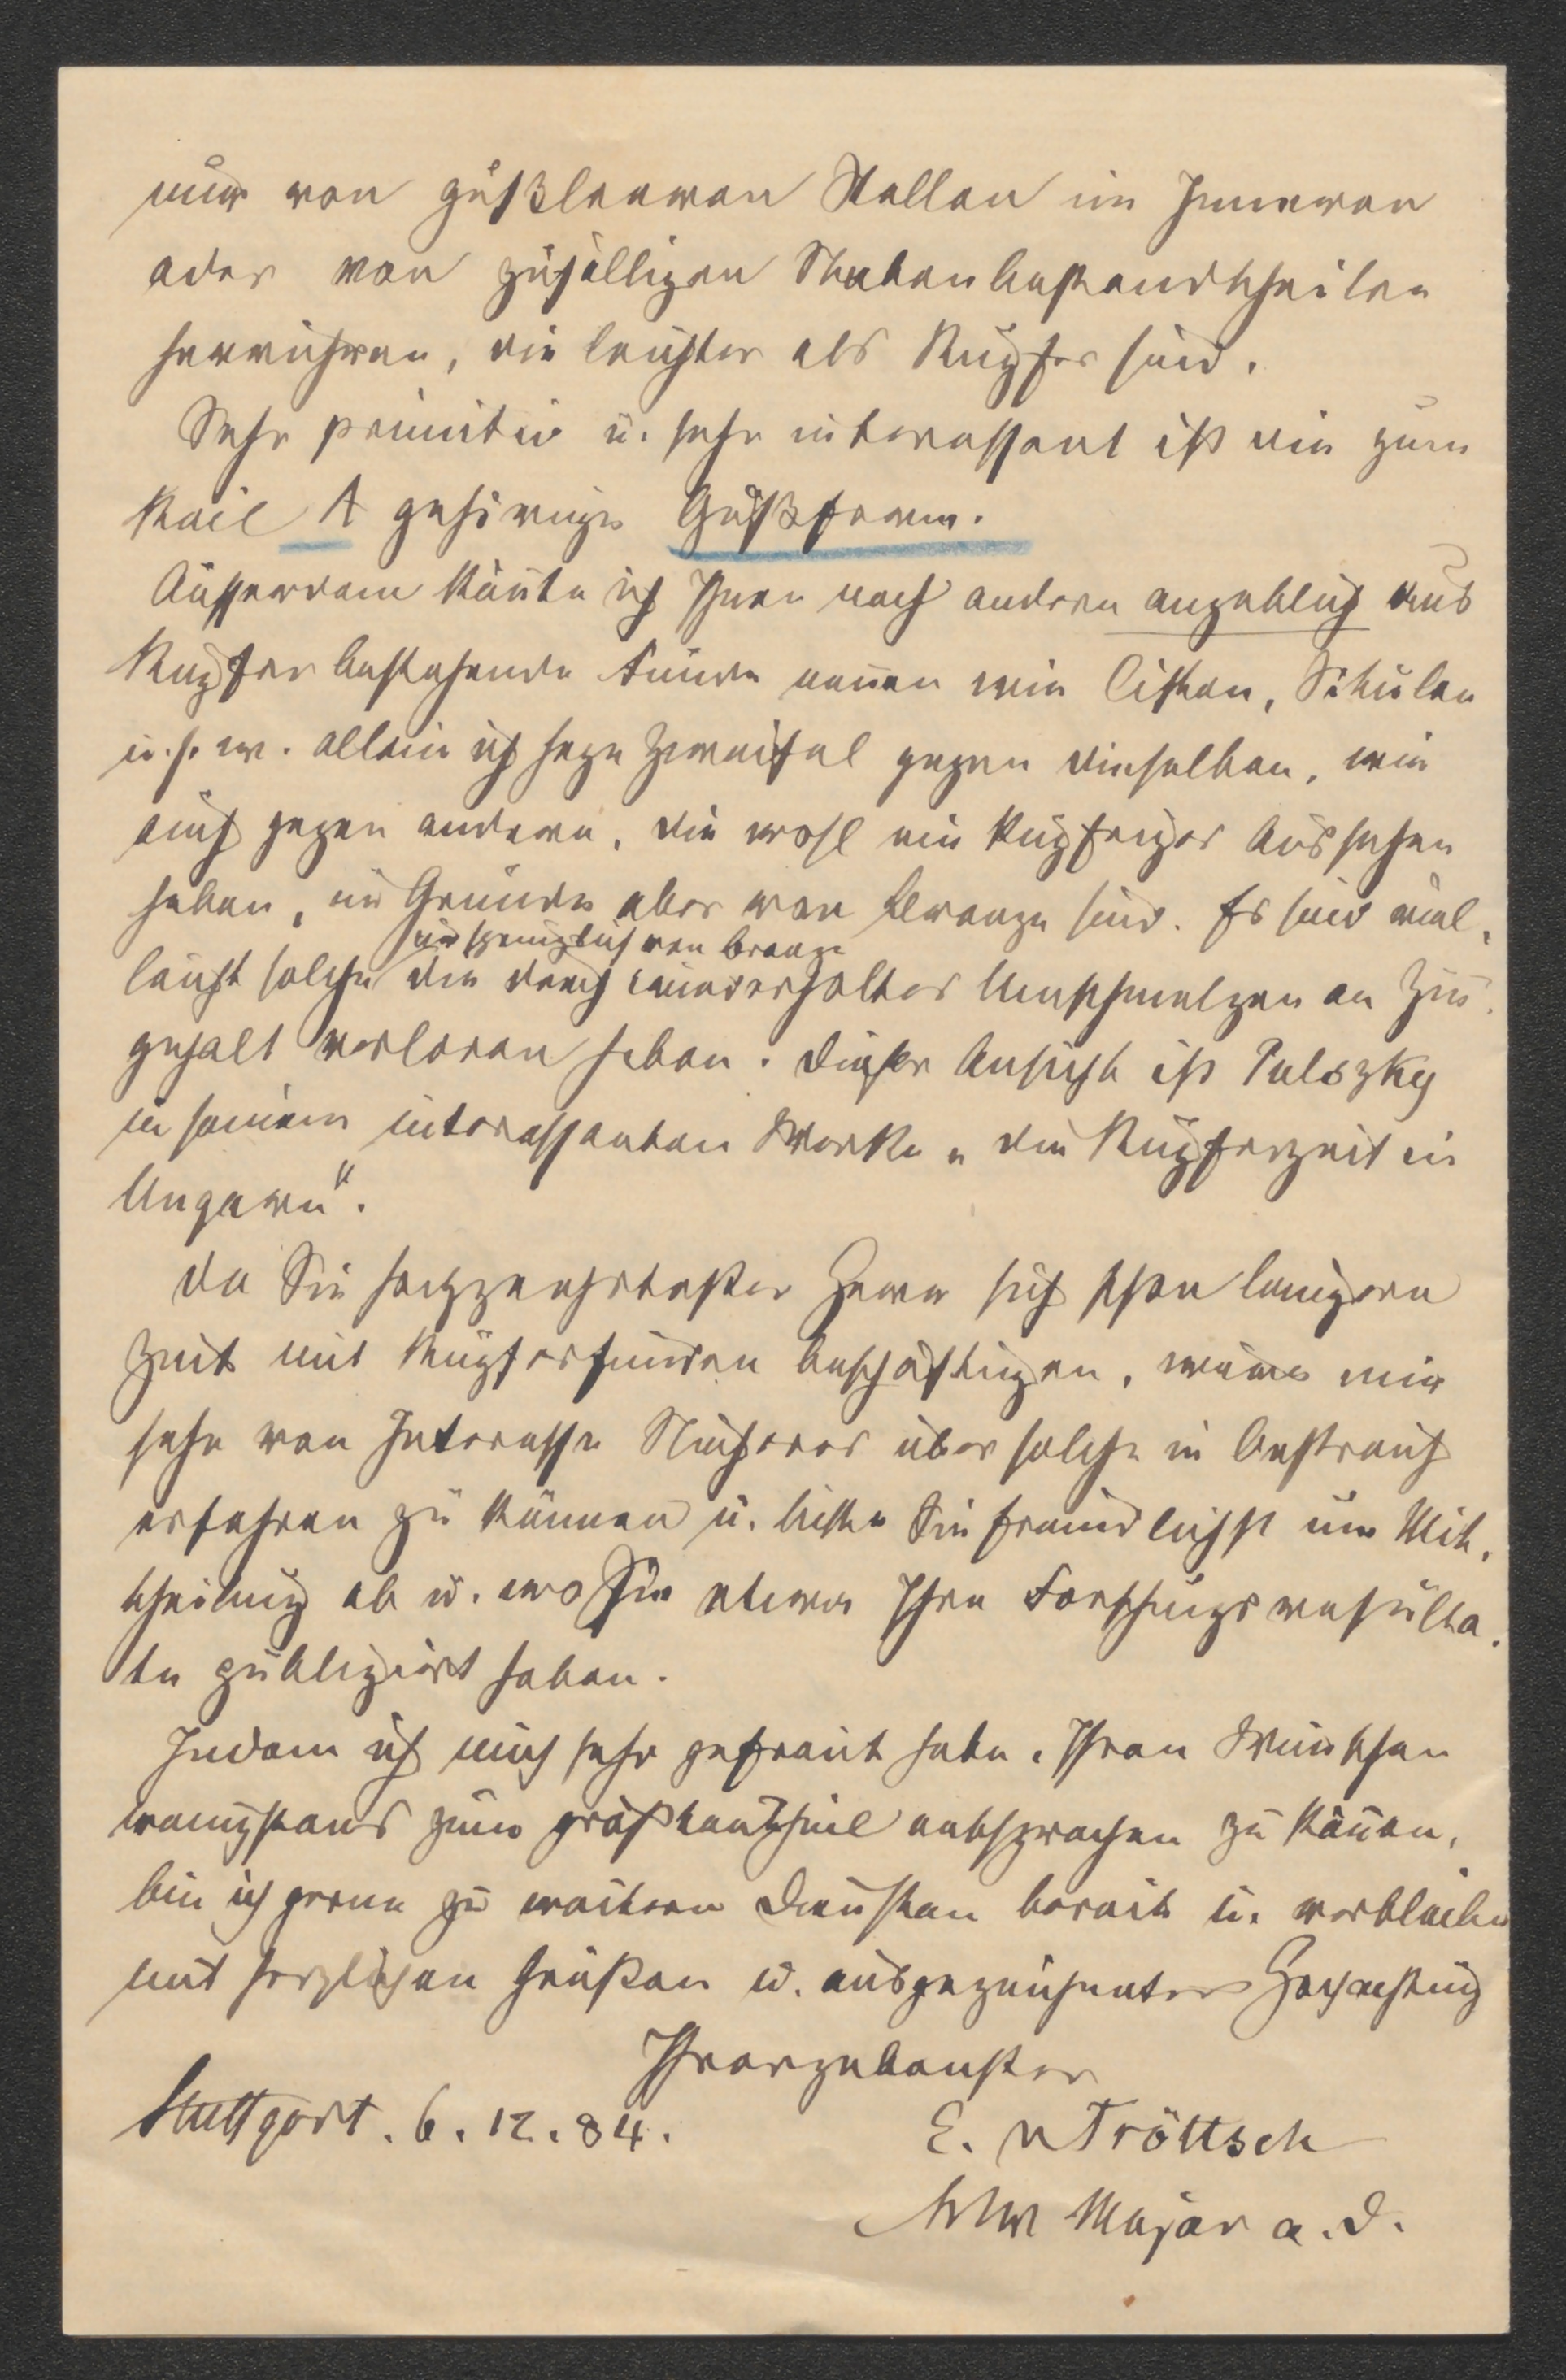 nur von gußleeren Stellen im Inneren
oder von zufälligen Nebenbestandtheilen
herrühren, die leichter als Kupfer sind.
Sehr primitiv u. sehr interessant ist die zum
Keil A gehörige Gußform.
Ausserdem könte ich Ihnen noch andere angeblich aus
Kupfer bestehende Funde nenen wie Listen, Fibulen
u. s. w. allein ich hege Zweifel gegen dieselben, wie
auch gegen andere, die wohl ein kupfriges Aussehen
haben, im Grunde aber von Bronze sind. Es sind viel-
ursprünglich von Bronze
leicht solche die durch wiederholtes Umschmelzen an Zin-
gehalt verloren haben. Dieser Ansicht ist Pulszky
in seinem interessanten Werke „die Kupferzeit in
Ungarn“.
Da Sie hochgeehrtester Herr sich schon längere
Zeit mit Kupferfunden beschäftigen, wäre mir
sehr von Interesse Näheres über solche in Oestreich
erfahren zu können u. bitte Sie freundlichst um Mit-
theilung ob u. wo Sie etwa Ihre Forschungsresulta-
te publizirt haben.
Indem ich mich sehr gefreut habe, Ihren Wünschen
wenigstens zum größten Theil entsprechen zu könen,
bin ich gerne zu weitern Diensten bereit u. verbleibe
mit herzlichen Grüßen u. ausgezeichneter Hochachtung
Ihr ergebenster
Stuttgart. 6. 12. 84.
E. v Tröltsch
Major a. D.